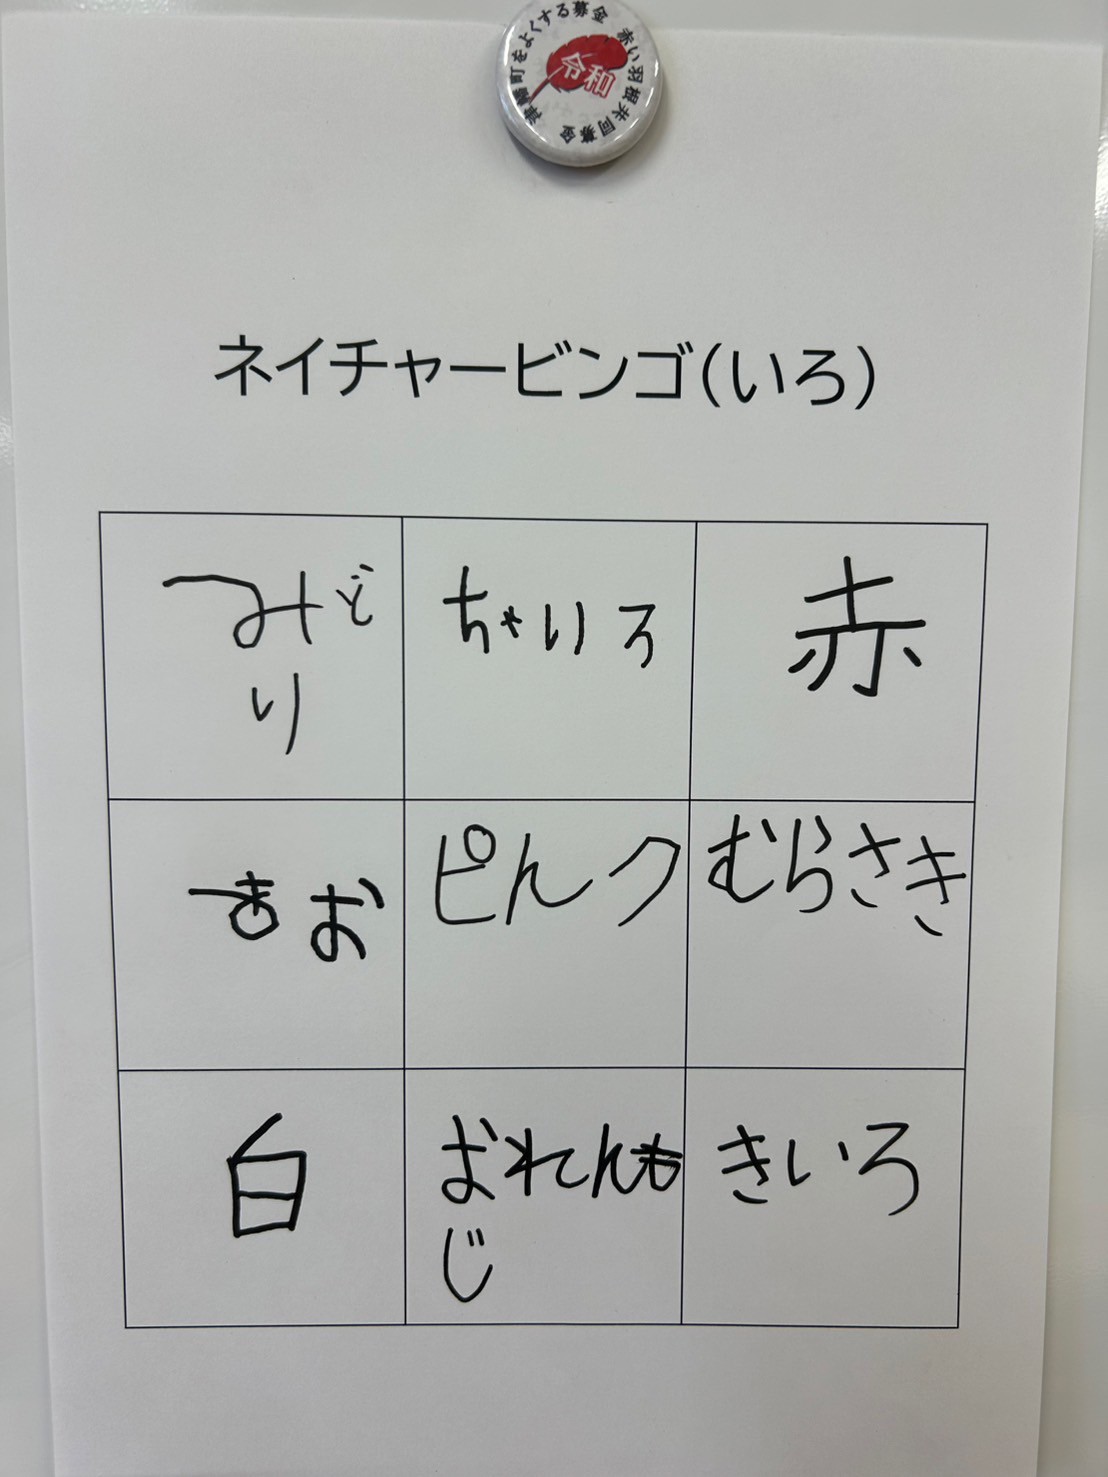 津幡町をよくする募金 赤い羽根共同募金
令和
ネイチャービンゴ(いろ)
みど ちゃいろ 赤
り
あお ピんク むらさき
白 おれんも きいろ
じ